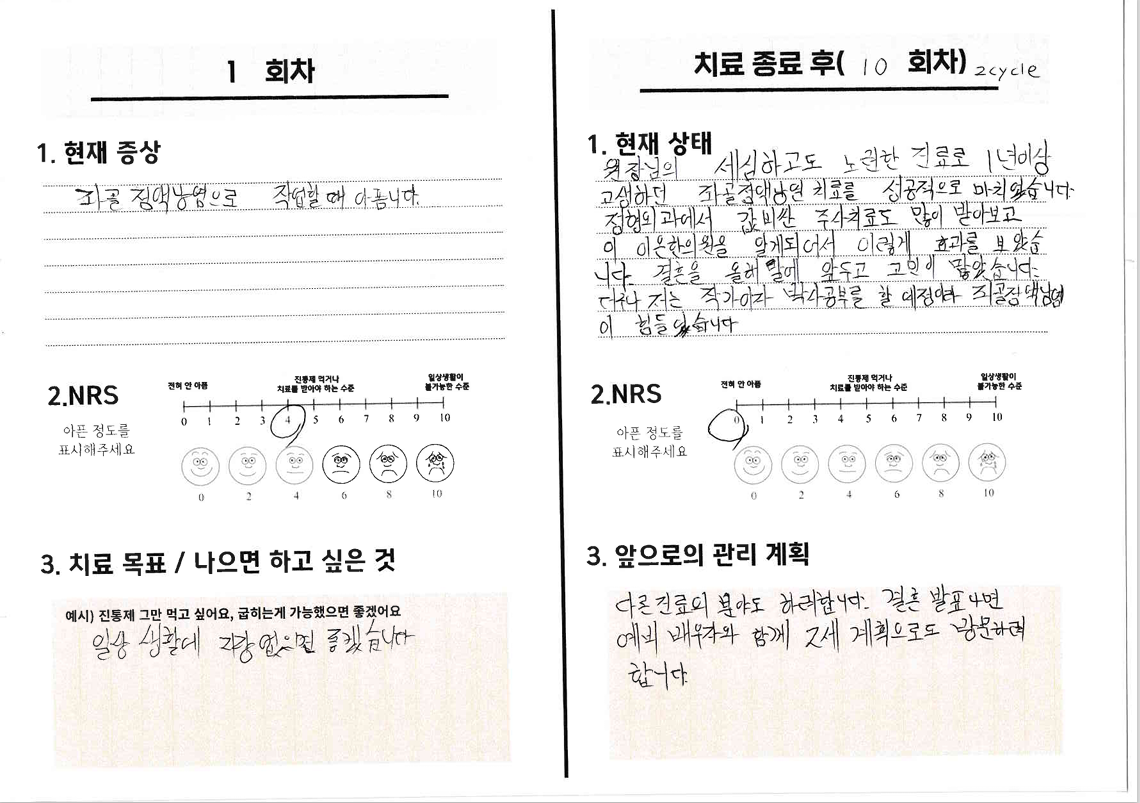 1 회차
1. 현재 증상
좌골 점액낭염으로 작업할 때 아픕니다.
2.NRS
아픈 정도를
표시해주세요
전혀 안 아픔
진통제 먹거나
치료를 받아야 하는 수준
일상생활이
불가능한 수준
0 1 2 3 4 5 6 7 8 9 10
0 2 4 6 8 10
3. 치료 목표 / 나으면 하고 싶은 것
예시) 진통제 그만 먹고 싶어요, 굽히는게 가능했으면 좋겠어요
일상 생활에 지장 없으면 좋겠습니다
치료 종료 후( 10 회차) 2cycle
1. 현재 상태
원장님의 세심하고도 노련한 진료로 1년이상
고생하던 좌골점액낭염 치료를 성공적으로 마치었습니다.
정형외과에서 값비싼 주사치료도 많이 받아보고
이 이은한의원을 알게되어서 이렇게 효과를 보았습
니다. 결혼을 올해 말에 앞두고 고민이 많았습니다.
저는 작가이라 박사공부를 할 예정이라 좌골점액낭염
이 힘들었습니다
2.NRS
아픈 정도를
표시해주세요
전혀 안 아픔
진통제 먹거나
치료를 받아야 하는 수준
일상생활이
불가능한 수준
0 1 2 3 4 5 6 7 8 9 10
0 2 4 6 8 10
3. 앞으로의 관리 계획
다른진료의 분야도 하려합니다. 결혼 발표나면
예비 배우자와 함께 2세 계획으로도 방문하려
합니다.